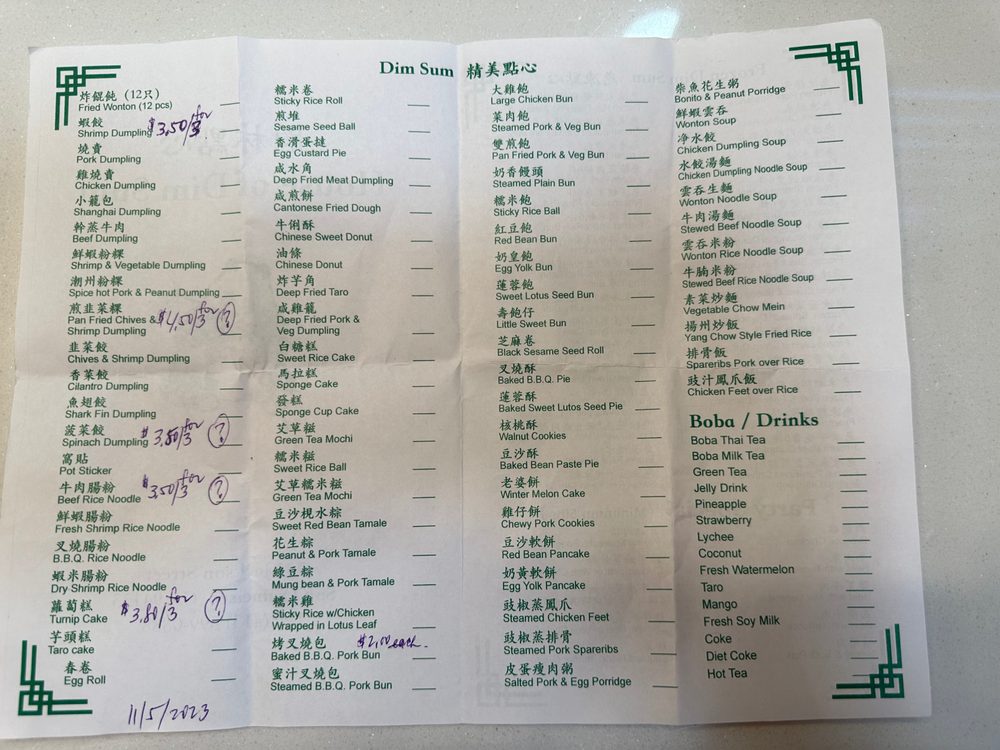 Dim Sum 精美點心
炸餛飩 (12只)
Fried Wonton (12 pcs)
蝦餃
Shrimp Dumpling $3.50/for 3
燒賣
Pork Dumpling
雞燒賣
Chicken Dumpling
小籠包
Shanghai Dumpling
幹蒸牛肉
Beef Dumpling
鮮蝦粉粿
Shrimp & Vegetable Dumpling
潮州粉粿
Spice hot Pork & Peanut Dumpling
煎韭菜粿
Pan Fried Chives & $4.50/for 3 ?
Shrimp Dumpling
韭菜餃
Chives & Shrimp Dumpling
香菜餃
Cilantro Dumpling
魚翅餃
Shark Fin Dumpling
菠菜餃
Spinach Dumpling $3.80/for 3 ?
窩貼
Pot Sticker
牛肉腸粉
Beef Rice Noodle $3.50/for 3 ?
鮮蝦腸粉
Fresh Shrimp Rice Noodle
叉燒腸粉
B.B.Q. Rice Noodle
蝦米腸粉
Dry Shrimp Rice Noodle
蘿蔔糕
Turnip Cake $3.80/for 3 ?
芋頭糕
Taro cake
春卷
Egg Roll
11/5/2023
糯米卷
Sticky Rice Roll
煎堆
Sesame Seed Ball
香滑蛋撻
Egg Custard Pie
咸水角
Deep Fried Meat Dumpling
咸煎餅
Cantonese Fried Dough
牛脷酥
Chinese Sweet Donut
油條
Chinese Donut
炸芋角
Deep Fried Taro
咸雞籠
Deep Fried Pork &
Veg Dumpling
白糖糕
Sweet Rice Cake
馬拉糕
Sponge Cake
發糕
Sponge Cup Cake
艾草糍
Green Tea Mochi
糯米糍
Sweet Rice Ball
艾草糯米糍
Green Tea Mochi
豆沙梘水粽
Sweet Red Bean Tamale
花生粽
Peanut & Pork Tamale
綠豆粽
Mung bean & Pork Tamale
糯米雞
Sticky Rice w/Chicken
Wrapped in Lotus Leaf
烤叉燒包 $2.00 each.
Baked B.B.Q. Pork Bun
蜜汁叉燒包
Steamed B.B.Q. Pork Bun
大雞飽
Large Chicken Bun
菜肉飽
Steamed Pork & Veg Bun
雙煎飽
Pan Fried Pork & Veg Bun
奶香饅頭
Steamed Plain Bun
糯米飽
Sticky Rice Ball
紅豆飽
Red Bean Bun
奶皇飽
Egg Yolk Bun
蓮蓉飽
Sweet Lotus Seed Bun
壽飽仔
Little Sweet Bun
芝麻卷
Black Sesame Seed Roll
叉燒酥
Baked B.B.Q. Pie
蓮蓉酥
Baked Sweet Lutos Seed Pie
核桃酥
Walnut Cookies
豆沙酥
Baked Bean Paste Pie
老婆餅
Winter Melon Cake
雞仔餅
Chewy Pork Cookies
豆沙軟餅
Red Bean Pancake
奶黃軟餅
Egg Yolk Pancake
豉椒蒸鳳爪
Steamed Chicken Feet
豉椒蒸排骨
Steamed Pork Spareribs
皮蛋瘦肉粥
Salted Pork & Egg Porridge
柴魚花生粥
Bonito & Peanut Porridge
鮮蝦雲吞
Wonton Soup
净水餃
Chicken Dumpling Soup
水餃湯麵
Chicken Dumpling Noodle Soup
雲吞生麵
Wonton Noodle Soup
牛肉湯麵
Stewed Beef Noodle Soup
雲吞米粉
Wonton Rice Noodle Soup
牛腩米粉
Stewed Beef Rice Noodle Soup
素菜炒麵
Vegetable Chow Mein
揚州炒飯
Yang Chow Style Fried Rice
排骨飯
Spareribs Pork over Rice
豉汁鳳爪飯
Chicken Feet over Rice
Boba / Drinks
Boba Thai Tea
Boba Milk Tea
Green Tea
Jelly Drink
Pineapple
Strawberry
Lychee
Coconut
Fresh Watermelon
Taro
Mango
Fresh Soy Milk
Coke
Diet Coke
Hot Tea